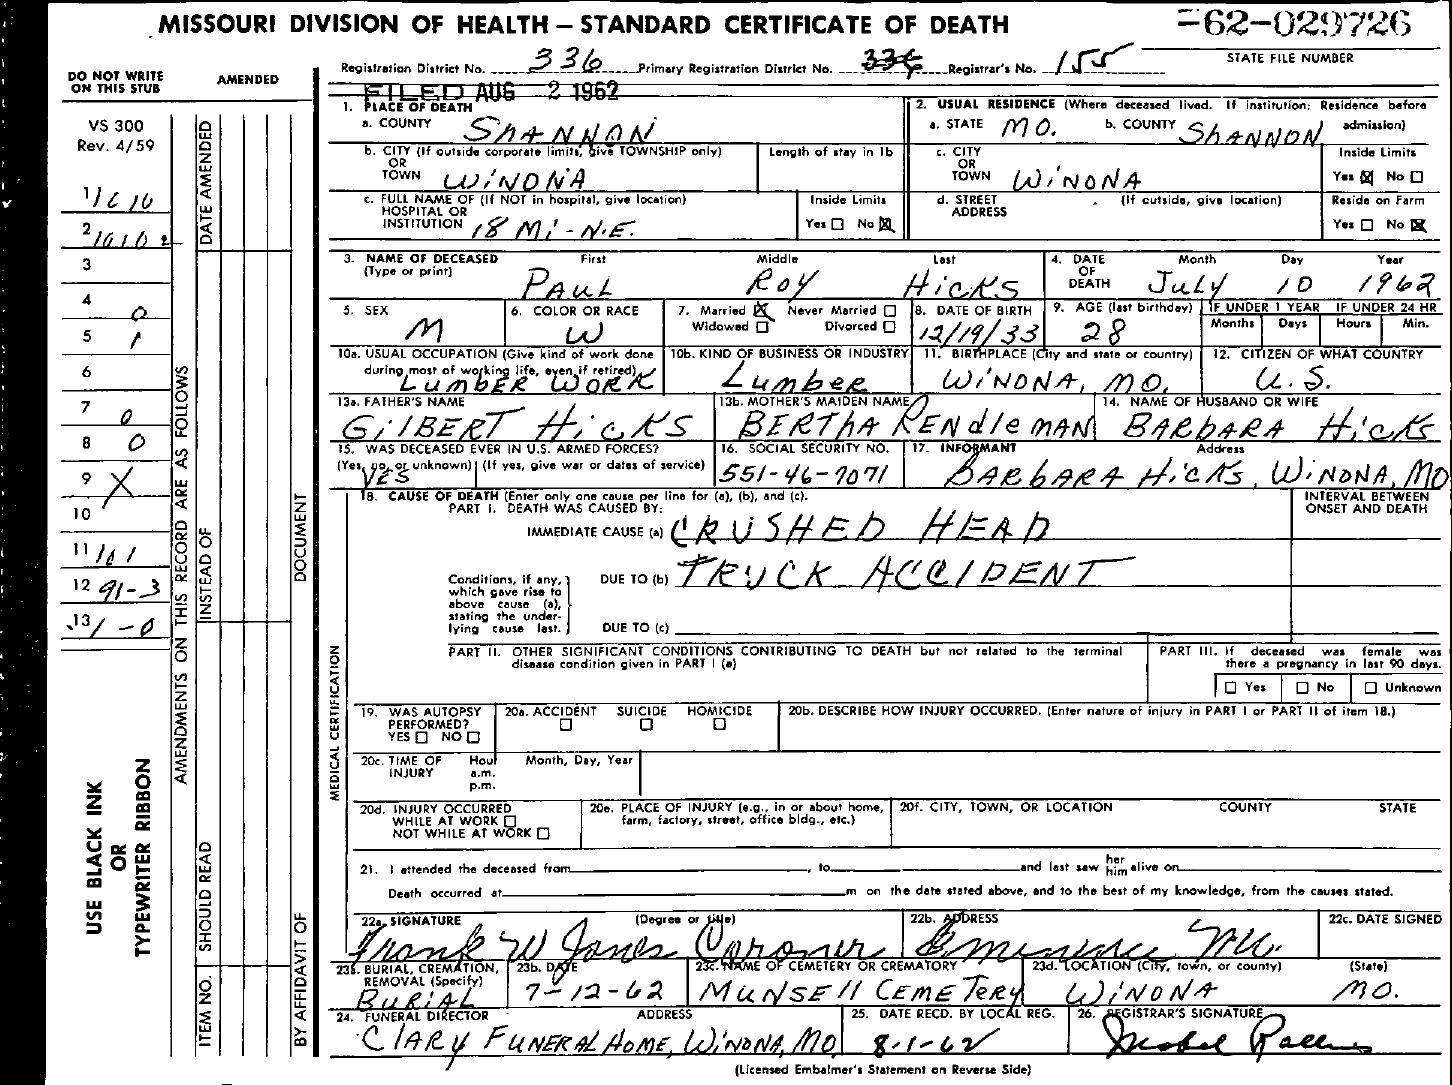 MISSOURI DIVISION OF HEALTH – STANDARD CERTIFICATE OF DEATH
=62-029726
STATE FILE NUMBER
DO NOT WRITE ON THIS STUB
AMENDED
Registration District No. 336 Primary Registration District No. 336 Registrar's No. 155
FILED AUG 2 1962
VS 300
Rev. 4/59
1. PLACE OF DEATH
a. COUNTY SHANNON
2. USUAL RESIDENCE (Where deceased lived. If institution: Residence before admission)
a. STATE MO. b. COUNTY SHANNON
b. CITY (If outside corporate limits, give TOWNSHIP only) OR TOWN WINONA
Length of stay in 1b
c. CITY OR TOWN WINONA
Inside Limits Yes ☒ No ☐
c. FULL NAME OF (If NOT in hospital, give location) HOSPITAL OR INSTITUTION 18 Mi - N.E.
Inside Limits Yes ☐ No ☒
d. STREET ADDRESS (If outside, give location)
Reside on Farm Yes ☐ No ☒
3. NAME OF DECEASED (Type or print) First Middle Last
PAUL ROY HICKS
4. DATE OF DEATH Month Day Year
July 10 1962
5. SEX M
6. COLOR OR RACE W
7. Married ☒ Never Married ☐ Widowed ☐ Divorced ☐
8. DATE OF BIRTH 12/19/33
9. AGE (last birthday) 28
IF UNDER 1 YEAR Months Days
IF UNDER 24 HR Hours Min.
10a. USUAL OCCUPATION (Give kind of work done during most of working life, even if retired) LUMBER WORK
10b. KIND OF BUSINESS OR INDUSTRY Lumber
11. BIRTHPLACE (City and state or country) WINONA, MO.
12. CITIZEN OF WHAT COUNTRY U.S.
13a. FATHER'S NAME GILBERT HICKS
13b. MOTHER'S MAIDEN NAME BERTHA RENDLEMAN
14. NAME OF HUSBAND OR WIFE BARBARA HICKS
15. WAS DECEASED EVER IN U.S. ARMED FORCES? (Yes, no, or unknown) (If yes, give war or dates of service) YES
16. SOCIAL SECURITY NO. 551-46-7071
17. INFORMANT Address BARBARA HICKS, WINONA, MO
18. CAUSE OF DEATH (Enter only one cause per line for (a), (b), and (c).
PART I. DEATH WAS CAUSED BY:
INTERVAL BETWEEN ONSET AND DEATH
IMMEDIATE CAUSE (a) CRUSHED HEAD
Conditions, if any, which gave rise to above cause (a), stating the underlying cause last.
DUE TO (b) TRUCK ACCIDENT
DUE TO (c)
PART II. OTHER SIGNIFICANT CONDITIONS CONTRIBUTING TO DEATH but not related to the terminal disease condition given in PART I (a)
PART III. If deceased was female was there a pregnancy in last 90 days.
☐ Yes ☐ No ☐ Unknown
19. WAS AUTOPSY PERFORMED? YES ☐ NO ☐
20a. ACCIDENT ☐ SUICIDE ☐ HOMICIDE ☐
20b. DESCRIBE HOW INJURY OCCURRED. (Enter nature of injury in PART I or PART II of item 18.)
20c. TIME OF INJURY Hour a.m. p.m. Month, Day, Year
20d. INJURY OCCURRED WHILE AT WORK ☐ NOT WHILE AT WORK ☐
20e. PLACE OF INJURY (e.g., in or about home, farm, factory, street, office bldg., etc.)
20f. CITY, TOWN, OR LOCATION COUNTY STATE
21. I attended the deceased from , to and last saw her him alive on
Death occurred at m on the date stated above, and to the best of my knowledge, from the causes stated.
22a. SIGNATURE (Degree or title) Frank W Jones Coroner
22b. ADDRESS Eminence Mo.
22c. DATE SIGNED
23a. BURIAL, CREMATION, REMOVAL (Specify) BURIAL
23b. DATE 7-12-62
23c. NAME OF CEMETERY OR CREMATORY MUNSELL CEMETERY
23d. LOCATION (City, town, or county) (State) WINONA MO.
24. FUNERAL DIRECTOR ADDRESS CLARY FUNERAL HOME, WINONA, MO.
25. DATE RECD. BY LOCAL REG. 8-1-62
26. REGISTRAR'S SIGNATURE
(Licensed Embalmer's Statement on Reverse Side)
MEDICAL CERTIFICATION
3
4 0
5 1
6
7 0
8 0
9 X
10
11 101
12 91-3
13 1-0
USE BLACK INK
OR
TYPEWRITER RIBBON
AMENDMENTS ON THIS RECORD ARE AS FOLLOWS
DATE AMENDED
INSTEAD OF
SHOULD READ
ITEM NO.
DOCUMENT
BY AFFIDAVIT OF